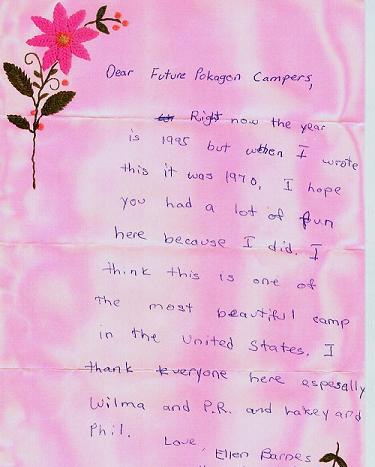 Dear Future Pokagon Campers,
Right now the year
is 1995 but when I wrote
this it was 1970. I hope
you had a lot of fun
here because I did. I
think this is one of
the most beautiful camp
in the United States. I
thank everyone here aspesally
Wilma and P.R. and Lakey and
Phil.
Love,
Ellen Barnes